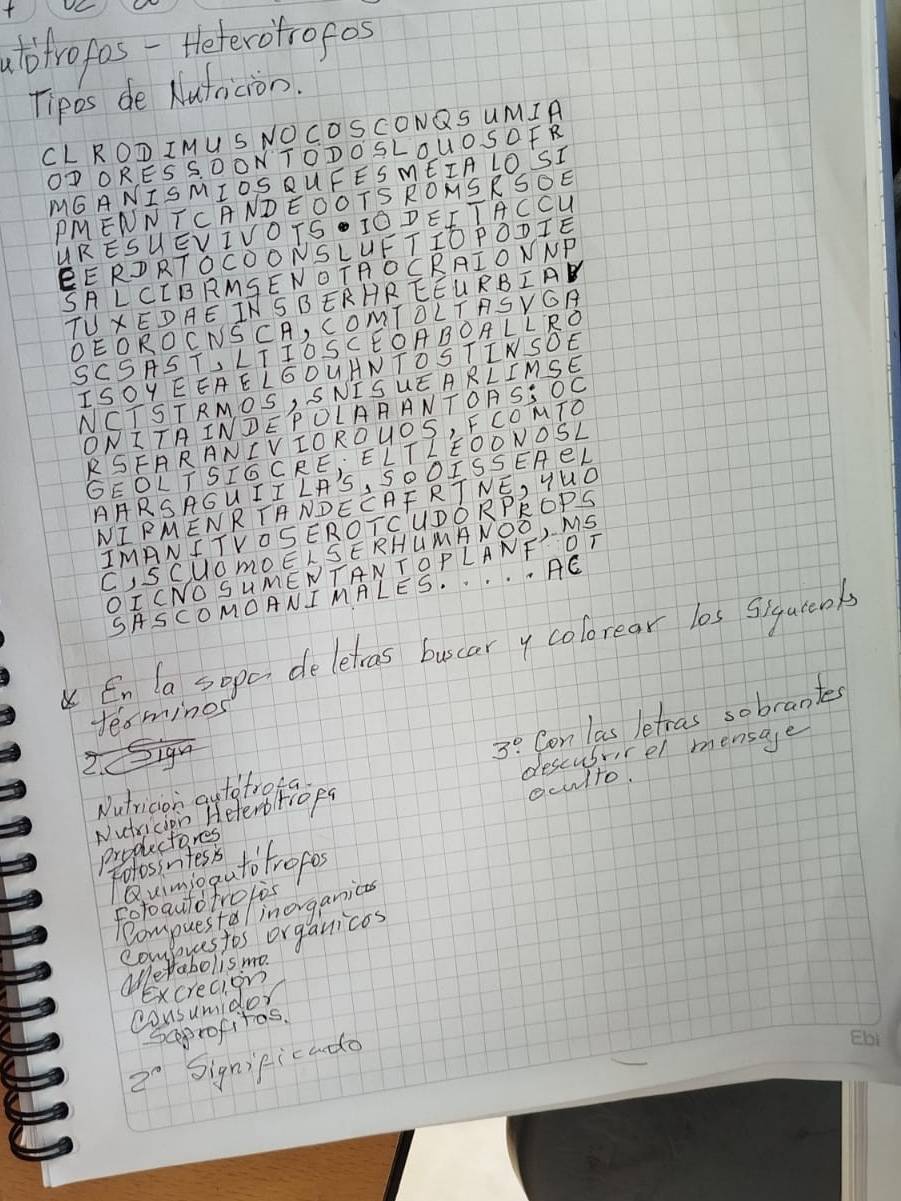 utótrofos - Heterótrofos
Tipos de Nutrición.
CLRODIMUSNOCOSCONQSUMIA
ODORESSOONTODOSLOUOSOFR
MGANISMIOSQUFESMEIALOSI
PMENNTCANDEOOTSROMSRSOE
URESUEVIVOTS•IODEITACCU
EERDRTOCOONSLUFTIOPODIE
SALCIBRMSENOTAOCRAIONNP
TUXEDAEINSBERHREEURBIAV
OEOROCNSCA,COMTOLTASVGA
SCSAST,LTIOSCEOABOALLRO
ISOYEEAELGOUHNTOSTINSOE
NCTSTRMOS,SNISUEARLIMSE
ONITAINDEPOLARANTOAS;OC
RSFARANIVIOROUOS,FCOMTO
GEOLTSIGCRE;ELTLEOONOSL
AARSAGUIILAS,SOOISSEAeL
NIPMENRTANDECAFRTNE,YUO
IMANITVOSEROTCUDORPROPS
C,SCUOMOELSERHUMANOO,MS
OICNOSUMENTANTOPLANF:OT
SASCOMOANIMALES.....AC
En la sopa de letras buscar y colorear los Siguients
términos
2. Sign
3º. Con las letras sobrantes
descubrir el mensaje
oculto.
Nutrición autótrofa.
Nutrición Heterótrofa
productores
Fotosíntesis
Quimioautótrofos
Fotoautótrofos
Compuesto inorganicos
Compuestos orgánicos
Metabolismo.
Excreción
Consumidor
Saprofitos.
2º Significado
Ebi